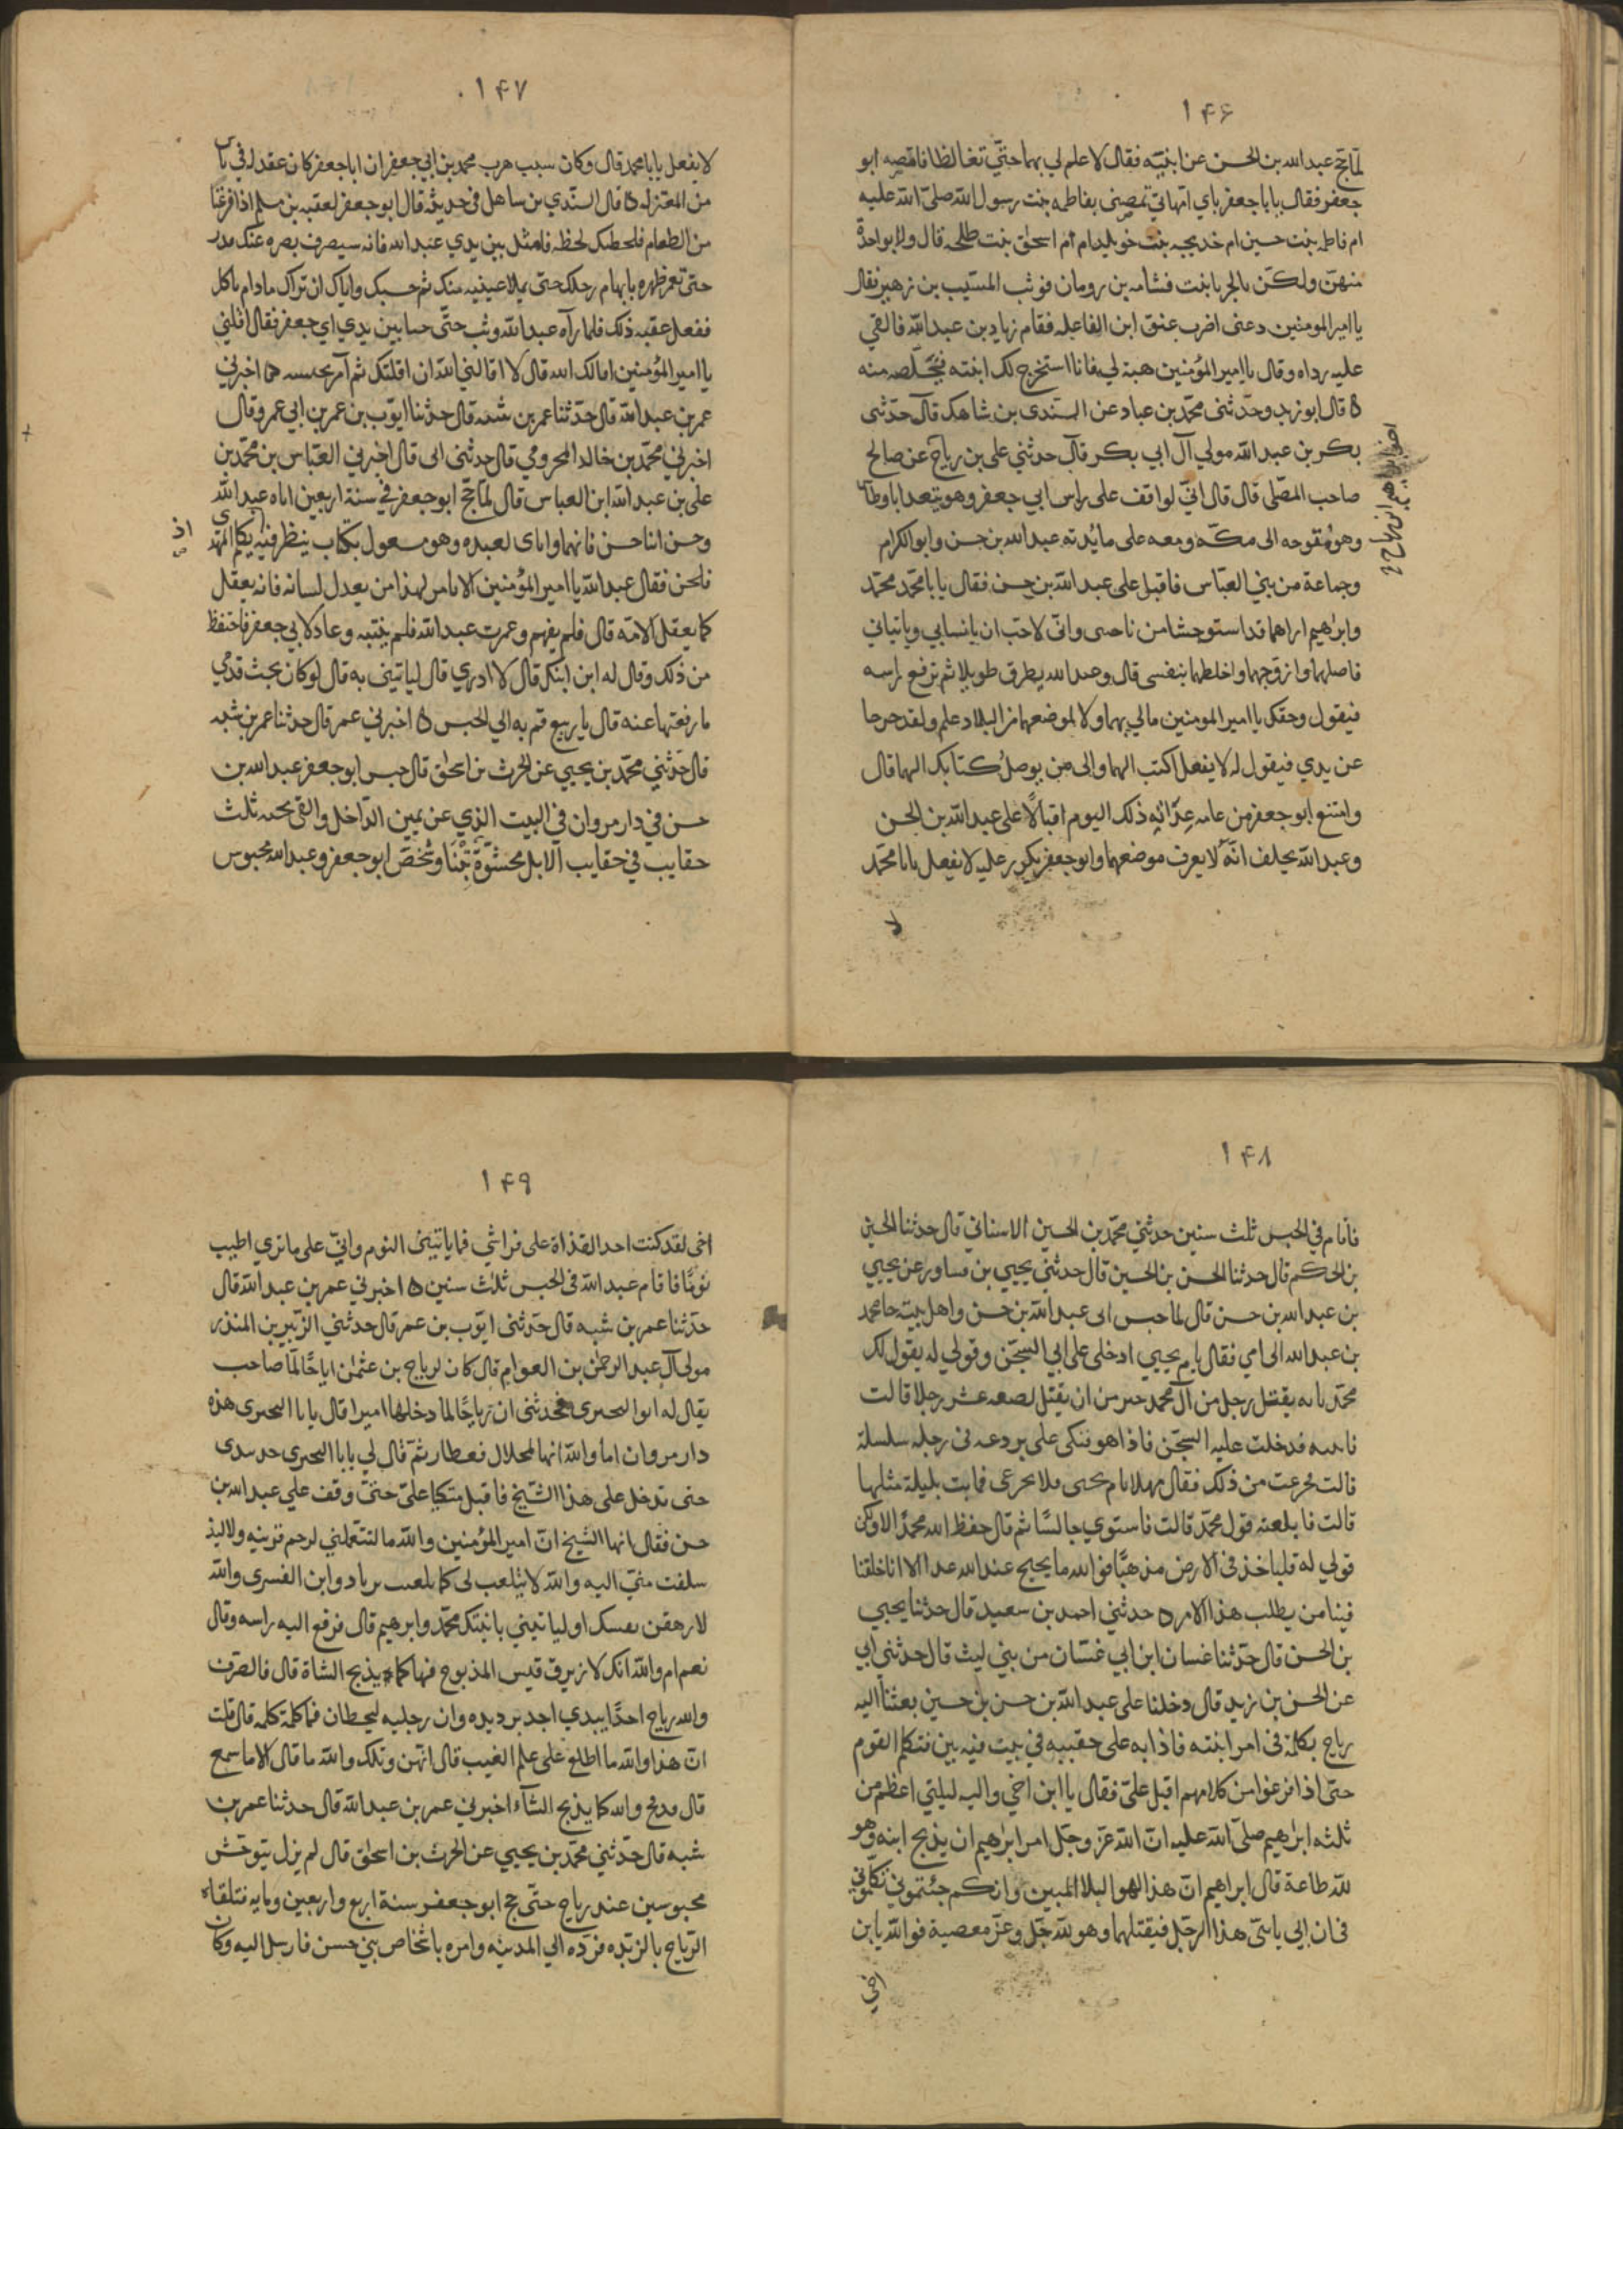 ۱۴۶
لما حج عبدالله بن الحسن عن ابنيه فقال لا علم لي بهما حتّي تغالظا فامصه ابو
جعفر فقال يا با جعفر باي امّهاتي تمصنى بفاطمه بنت رسول الله صلّى الله عليه
ام فاطمه بنت حسين ام خديجه بنت خويلد ام ام اسحٰق بنت طلحه قال ولا بواحدة
منهنّ ولكن بالجربا بنت قسامه بن رومان فوثب المسيّب بن زهير فقال
يا امير المومنين دعنى اضرب عنق ابن الفاعله فقام زياد بن عبدالله فالقي
عليه رداه وقال يا امير المؤمنين هبة لي فانا استخرج لك ابنته فتخلّصه منه
ه قال ابو زيد وحدّثنى محمّد بن عباد عن السندى بن شاهك قال حدّثنى
بكر بن عبدالله مولي آل ابي بكر قال حدثني على بن رياح عن صالح
صاحب المصلى قال قال انّي لواقف على راس ابي جعفر وهو يتغدا باوطاس
وهو متوجه الى مكّه ومعه على مائدته عبدالله بن حسن وابو الكرام
وجماعة من بني العبّاس فاقبل على عبدالله بن حسن فقال يا با محمّد محمّد
وابرٰهيم اراهما قد استوحشا من ناحيتى وانّي لاحبّ ان يانسا بي وياتياني
فاصلهما وازوّجهما واخلطهما بنفسى قال وعبدالله يطرق طويلا ثم ترفع راسه
فيقول وحقك يا امير المومنين مالي بهما ولا لموضعهما من البلاد علم ولقد خرجا
عن يدي فيقول له لا يفعل اكتب الهما والى من يوصل كتابك الهما قال
وامتنع ابو جعفر من عامه غدائه ذلك اليوم اقبالًا على عبدالله بن الحسن
وعبدالله يحلف انّه لا يعرف موضعهما وابو جعفر يكرر عليه لا يفعل يا با محمّد
لا
ابن رياح
۱۴۷
لا يفعل يا با محمد قال وكان سبب هرب محمد بن ابي جعفر ان ابا جعفر كان عقد له في ناس
من المعتزله ه قال السندي بن ساهل في حديثه قال ابو جعفر لعقبه بن مسلم اذا فرغنا
من الطعام فلحظتك لحظه فامثل بين يدي عبدالله فانه سيصرف بصره عنك فدر
حتى تغمز ظهره بابهام رجلك حتى يملا عينيه منك ثم حسبك واياك ان تراك مادام ياكل
ففعل عقبه ذلك فلما رآه عبدالله وثب حتّى جثا بين يدي ابي جعفر فقال اقلني
يا امير المؤمنين اقالك الله قال لا اقالني الله ان اقلتك ثم امر بحبسه اخبرني
عمر بن عبدالله قال حدّثنا عمر بن شبه قال حدثنا ايّوب بن عمر بن ابي عمرو قال
اخبرني محمّد بن خالد المخزومي قال حدثنى ابى قال اخبرني العبّاس بن محمّد بن
على بن عبدالله ابن العباس قال لما حج ابو جعفر في سنة اربعين اتاه عبدالله
وحسن ابنا حسن فانهما واياى لعنده وهو مشغول بكتاب ينظر فيه اذ تكلم المهدي
فلحن فقال عبدالله يا امير المؤمنين الا تامر بهذا من يعدل لسانه فانه يغفل
كما يغفل الامه قال فلم يفهم وغمزت عبدالله فلم ينتبه وعاد لابي جعفر فاحتفظ
من ذلك وقال له اين ابنك قال لا ادري قال لتاتيني به قال لو كان تحت قدمي
ما رفعتها عنه قال يا ربيع قم به الي الحبس ه اخبرني عمر قال حدثنا عمر بن شبه
قال حدّثني محمّد بن يحيي عن الحرث بن اسحٰق قال حبس ابو جعفر عبدالله بن
حسن في دار مروان في البيت الذي عن يمين الداخل والقى تحته ثلث
حقايب في حقايب الابل محشوّة تبنا وشخص ابو جعفر وعبدالله محبوس
۱۴۸
فاقام في الحبس ثلث سنين حدثني محمّد بن الحسين الاسناني قال حدثنا الحسين
بن الحكم قال حدثنا الحسن بن الحسين قال حدثني يحيي بن مساور عن يحيي
بن عبدالله بن حسن قال لما حبس ابى عبدالله بن حسن واهل بيته جا محمد
بن عبدالله الى امي فقال يا ام يحيي ادخلى على ابي السجن وقولي له يقول لك
محمّد بانه يقتل رجل من آل محمد خير من ان يقتل بضعه عشر رجلا قالت
فاتيته فدخلت عليه السجن فاذا هو متكى على بردعه فى رجله سلسلة
قالت فجزعت من ذلك فقال مهلا يا ام يحيى فلا تجزعى فما بت بليلة مثلها
قالت فابلغته قول محمّد قالت فاستوي جالسًا ثم قال حفظ الله محمدًا لا ولكن
قولي له فلياخذ فى الارض مذهبًا فوالله ما يحتج عند الله غدا الا انا خلقنا
فينا من يطلب هذا الامر ه حدثني احمد بن سعيد قال حدثنا يحيي
بن الحسن قال حدّثنا غسان ابن ابي غسّان من بني ليث قال حدثني ابي
عن الحسن بن زيد قال دخلنا على عبدالله بن حسن بن حسين بعثنا اليه
رياح بكلمة فى امر ابنته فاذا به على حقيبه في بيت فيه تبن فتكلم القوم
حتى اذا فرغوا من كلامهم اقبل علىّ فقال يا ابن اخي والله لبليتي اعظم من
بليّه ابرٰهيم صلّى الله عليه انّ الله عز وجلّ امر ابرٰهيم ان يذبح ابنه وهو
لله طاعة قال ابراهيم انّ هذا لهو البلا المبين وانكم جئتموني تكلموني
فى ان اتي يا بنىّ هذا الرجل فيقتلهما وهو لله جلّ وعزّ معصية فوالله يا بن
اخي
۱۴۹
اخى لقد كنت اجد القذاة على فراشي فما ياتيني النوم وانّي على ما تري اطيب
نومًا فاقام عبدالله فى الحبس ثلٰث سنين ه اخبرني عمر بن عبدالله قال
حدّثنا عمر بن شبه قال حدّثنى ايّوب بن عمر قال حدثني الزّبير بن المنذر
مولى آل عبد الرحمٰن بن العوام قال كان لرياح بن عثمٰن صاحب
يقال له ابو البحترى فحدثنى ان رياحًا لما دخلها اميرا قال يا با البحترى هذه
دار مروان اما والله انها لمحلال مظعان ثم قال لي يا با البحترى خذ بيدى
حتى ندخل على هذا الشّيخ فاقبل متكيا علىّ حتّى وقف علي عبدالله بن
حسن فقال ايها الشيخ انّ امير المؤمنين والله ما استعملني لرحم قريبه ولا ليد
سلفت منّي اليه والله لا يتلعب لى كما تلعب بزياد وابن القسرى والله
لازهقن نفسك او لتاتيني بابنيك محمّد وابرهيم قال فرفع اليه راسه وقال
نعم ام والله انك لازيرق قيس المذبوح فيها كما يذبح الشاة قال فانصرف
والله رياح آخذًا بيدي اجد برد يده وان رجليه ليخطان مما كلمه قال قلت
انّ هذا والله ما اطلع على علم الغيب قال ايهن ويلك والله ما قال الا ما سمع
قال فذبح والله كما يذبح الشاة اخبرني عمر بن عبدالله قال حدثنا عمر بن
شبه قال حدّثني محمّد بن يحيي عن الحرث بن اسحٰق قال لم يزل بنو حسن
محبوسين عند رياح حتّى حج ابو جعفر سنة اربع واربعين ومايه فتلقاه
الرّياح بالرّبذه فردّه الي المدينه وامره باشخاص بني حسن فارسل اليه وكان